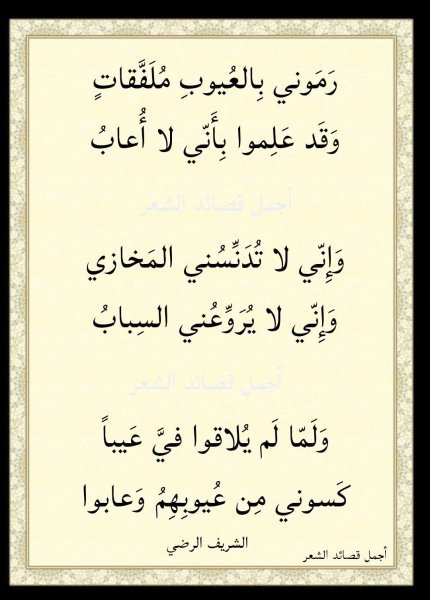 رَمَوني بِالعُيوبِ مُلَفَّقاتٍ
وَقَد عَلِموا بِأَنّي لا أُعابُ
أجمل قصائد الشعر
وَإِنّي لا تُدَنِّسُني المَخازي
وَإِنّي لا يُرَوِّعُني السِبابُ
أجمل قصائد الشعر
وَلَمّا لَم يُلاقوا فيَّ عَيباً
كَسوني مِن عُيوبِهِمُ وَعابوا
الشريف الرضي
أجمل قصائد الشعر